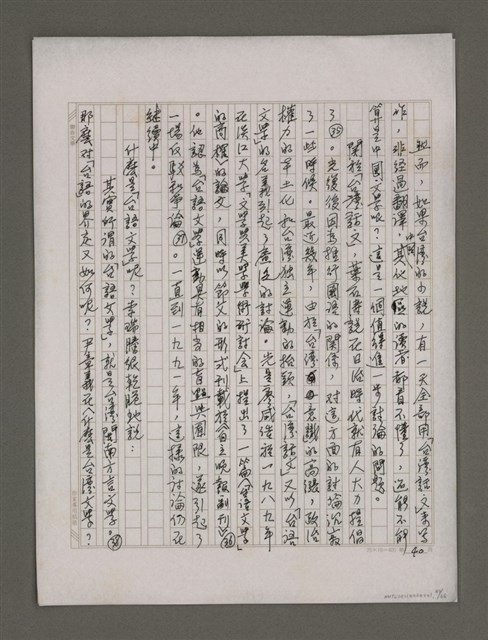 然而，如果台灣的小說，有一天全部用「台灣話文」來寫
作，非經過翻譯，其他中國地區的讀者都看不懂了，還能不能
算是中國文學呢？這是一個值得進一步討論的問題。
關於「台灣話文」，葉石濤說在日治時代就有人大力提倡
了㉟。光復後因為推行國語的關係，對這方面的討論沉寂
了一些時候。最近幾年，由於「台灣意識」的高漲，政治
權力的本土化和台灣獨立運動的抬頭，「台灣話文」又以「台語
文學」的名義引起了廣泛的討論。先是廖咸浩於一九八九年
在淡江大學「文學與美學學術研討會」上提出了一篇「台語文學」
的商榷」的論文，同時以節文的形式刊載於《自立晚報》副刊㊱
。他認為「台語文學」運動具有相當的盲點與囿限，遂引起了
一場伐駁和爭論㊲。一直到一九九一年，這樣的討論仍在
繼續中。
什麼是「台語文學」呢？李瑞騰很乾脆地說：
其實所謂的「台語文學」，就是台灣閩南方言文學。㊳
那麼對「台語」的界定又如何呢？尹章義在《什麼是台灣文學？
40